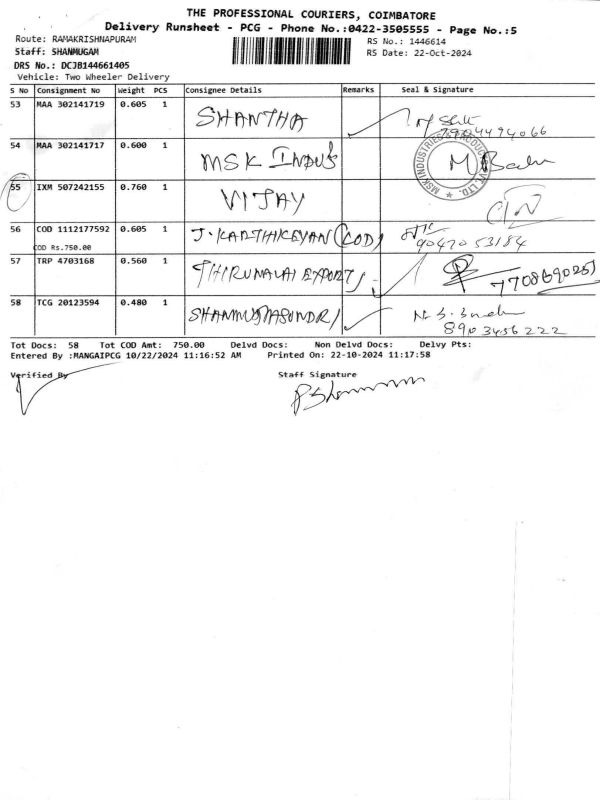 THE PROFESSIONAL COURIERS, COIMBATORE
Delivery Runsheet - PCG - Phone No.:0422-3505555 - Page No.:5
Route: RAMAKRISHNAPURAM RS No.: 1446614
Staff: SHANMUGAM RS Date: 22-Oct-2024
DRS No.: DCJB144661405
Vehicle: Two Wheeler Delivery
S No Consignment No Weight PCS Consignee Details Remarks Seal & Signature
53 MAA 302141719 0.605 1 SHANTHA
54 MAA 302141717 0.600 1 MSK INDUS
MSK INDUSTRIES PRODUCTS PVT. LTD.
55 IXM 507242155 0.760 1 VIJAY
56 COD 1112177592 0.605 1 J.KARTHIKEYAN (COD) 9047053184
COD Rs.750.00
57 TRP 4703168 0.560 1 THIRUMALAI EXPORTS
58 TCG 20123594 0.480 1 8903456222
Tot Docs: 58 Tot COD Amt: 750.00 Delvd Docs: Non Delvd Docs: Delvy Pts:
Entered By :MANGAIPCG 10/22/2024 11:16:52 AM Printed On: 22-10-2024 11:17:58
Verified By Staff Signature